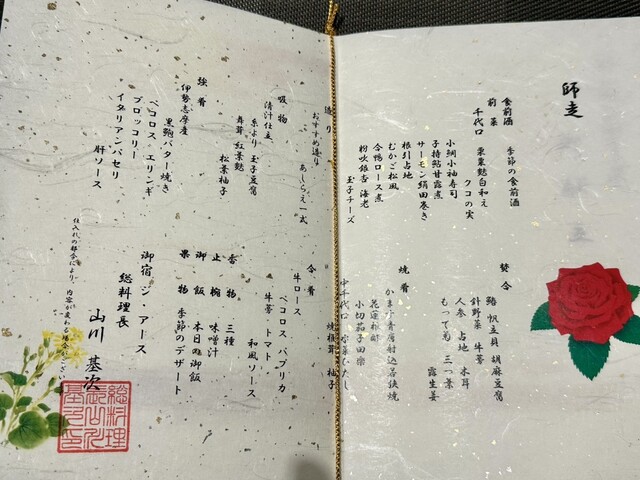 師走
食前酒
季節の食前酒
前菜
千代口
栗栗麩白和え
クコの実
小鯛小袖寿司
子持鮎甘露煮
サーモン絹田巻き
根引占地
むかご松風
合鴨ロース煮
粉吹銀杏 海老
玉子チーズ
焚合
帆立真 胡麻豆腐
針野菜 牛蒡
人参 占地 木耳
もって菊 三つ葉
露生姜
焼肴
花蓮根酢
小切茄子田楽
中千代口
焼根茸 柚子
造り
おすすめ造り
あしらえ一式
吸物
清汁仕立
糸より 玉子豆腐
舞茸 紅葉麩
松葉柚子
強肴
伊勢志摩産
黒鮑バター焼き
ペコロス エリンギ
ブロッコリー
イタリアンパセリ
肝ソース
合肴
牛ロース
ペコロス パプリカ
牛蒡 トマト
和風ソース
香物 三種
止椀 味噌汁
御飯 本日の御飯
果物 季節のデザート
御宿 ジ アース
総料理長
山川 基次
仕入れの都合により、内容が変わる場合がございます